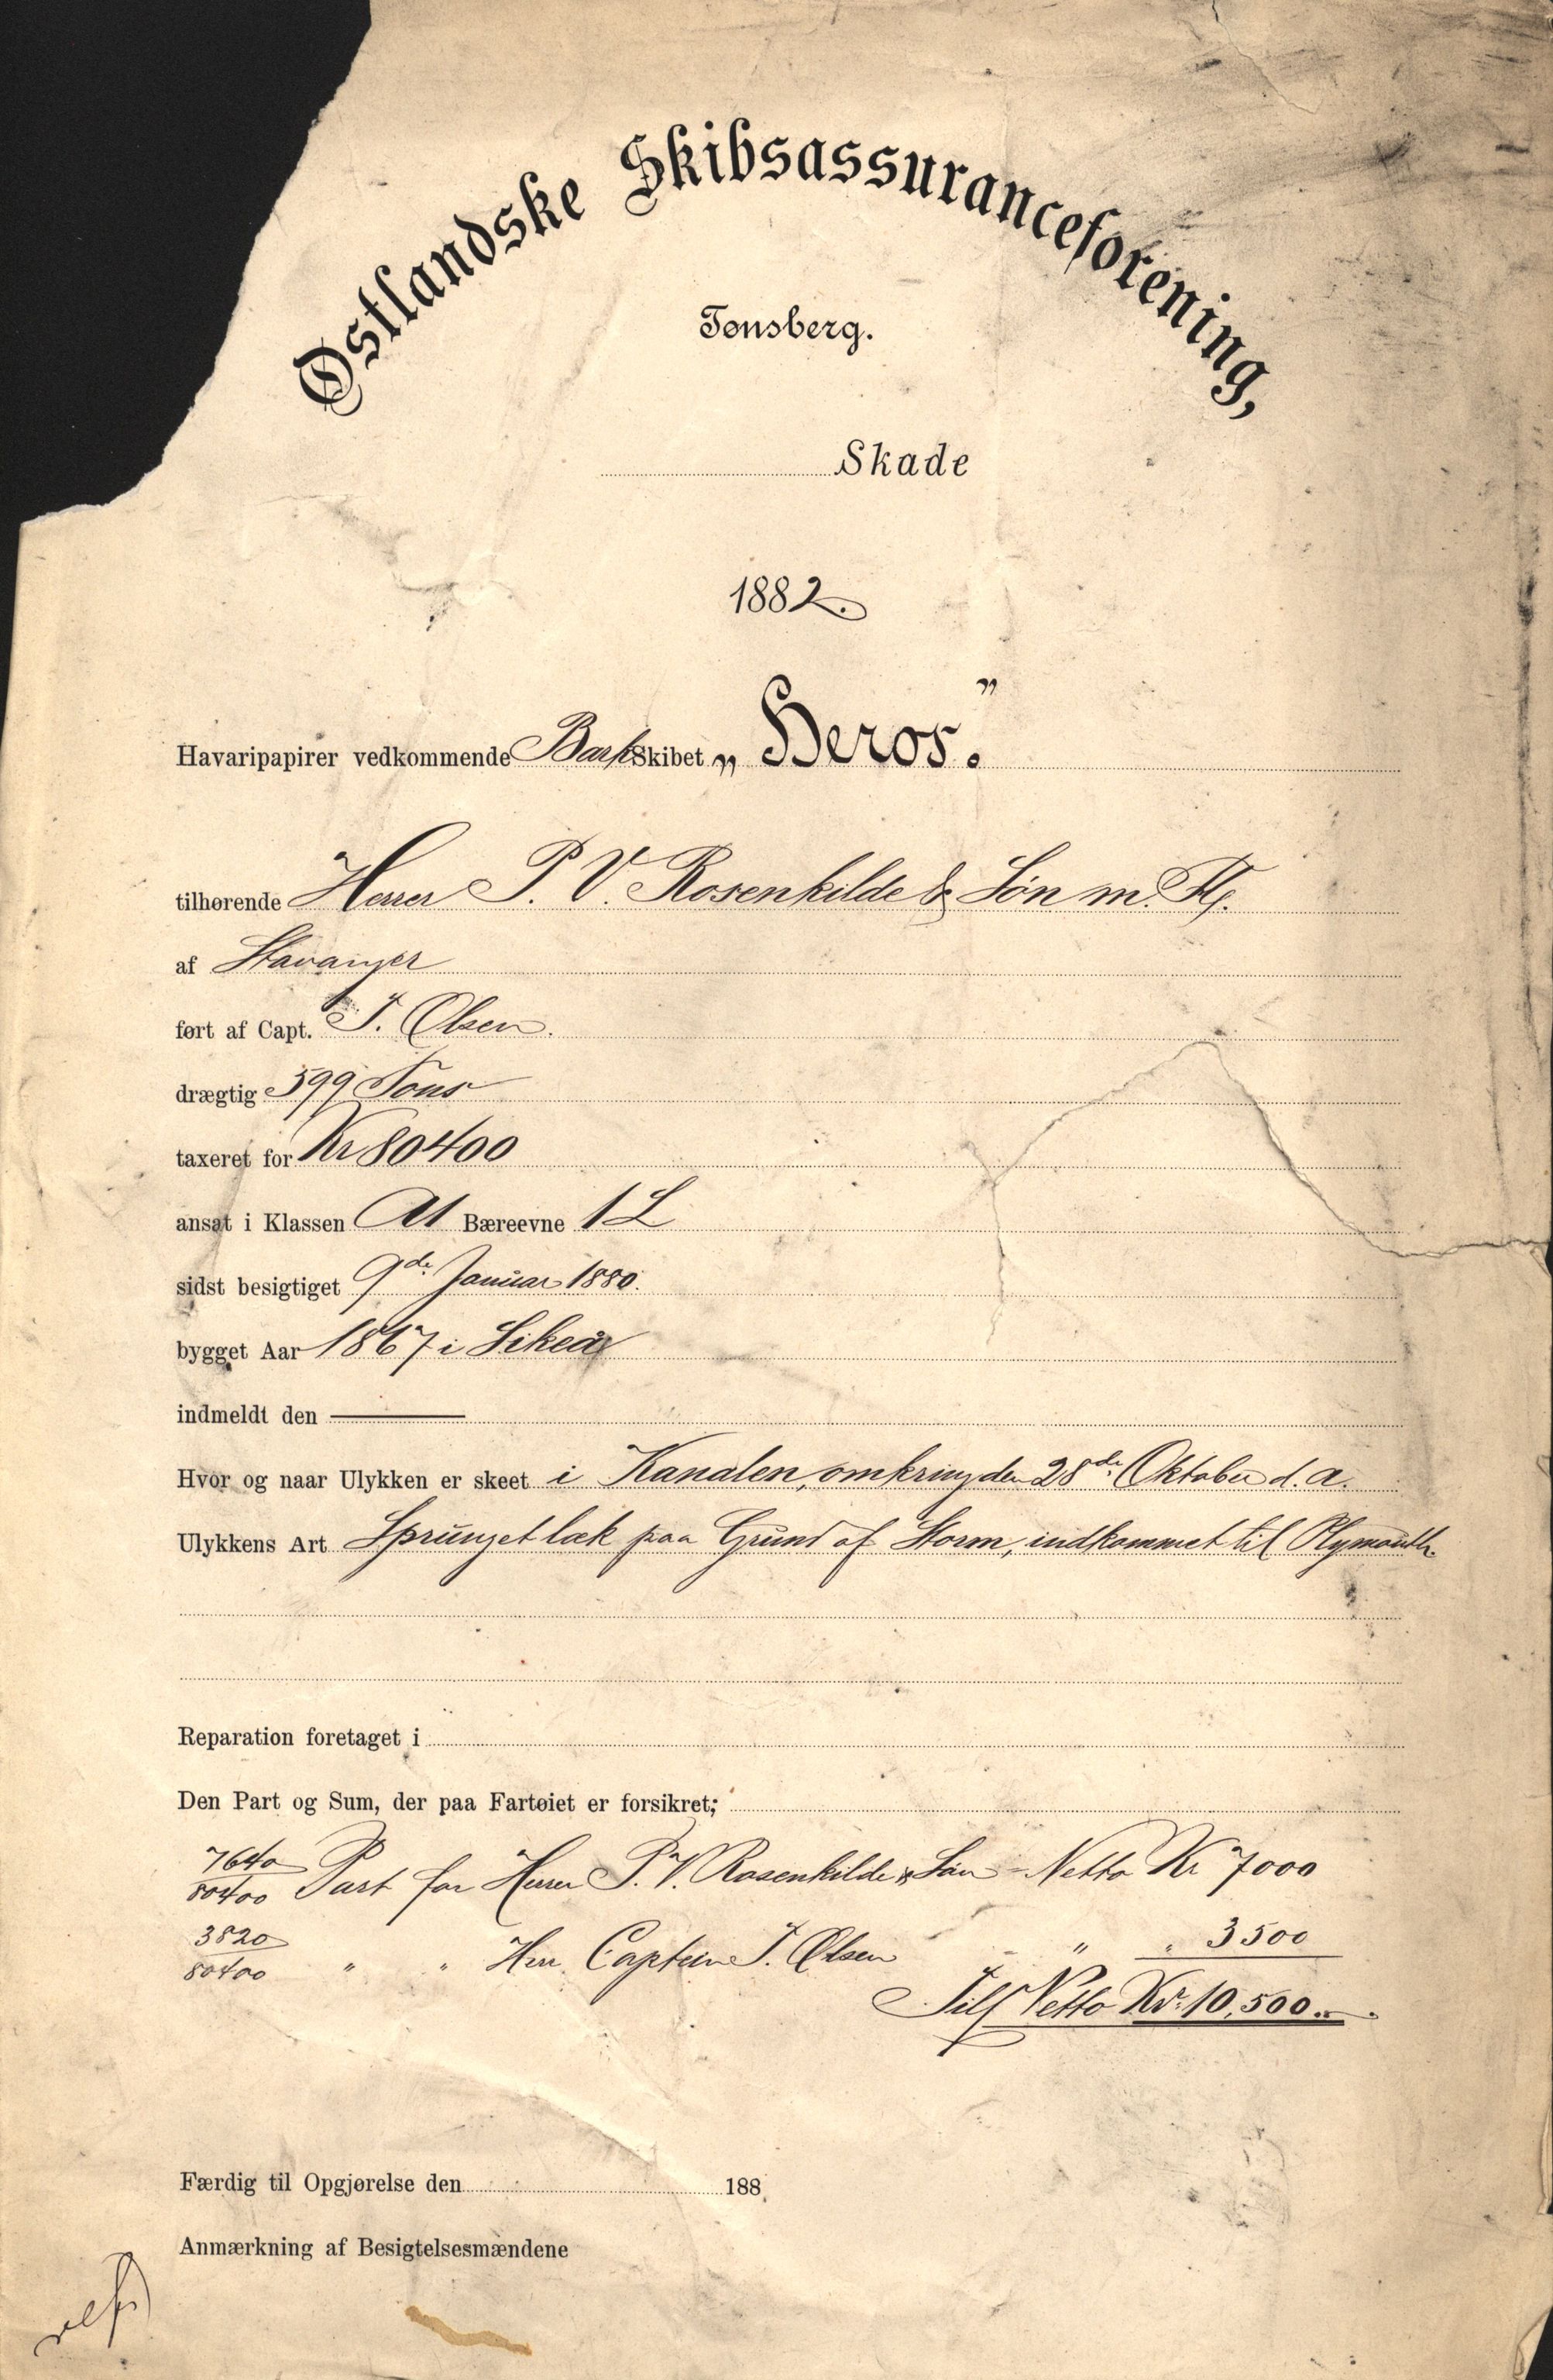 Østlandske Skibsassuranceforening,
Tønsberg.
Skade
1882.
Havaripapirer vedkommende Bark Skibet „Heros."
tilhørende Herrer P. V. Rosenkilde & Søn m. Fl.
af Stavanger
ført af Capt. J. Olsen.
drægtig 599 Tons
taxeret for Kr 80400
ansat i Klassen A1 Bæreevne 1 L
sidst besigtiget 9de Januar 1880.
bygget Aar 1867 i Sikeå
indmeldt den —
Hvor og naar Ulykken er skeet i Kanalen, omkring den 28de Oktober d. A.
Ulykkens Art Sprunget læk paa Grund af Storm, indkommet til Plymouth.
Reparation foretaget i
Den Part og Sum, der paa Fartøiet er forsikret;
7640/80400 Part for Herrer P. V. Rosenkilde & Søn - Netto Kr 7000
3820/80400 " " Herr Captein J. Olsen - " " 3500
Tils Netto Kr. 10,500..
Færdig til Opgjørelse den 188
Anmærkning af Besigtelsesmændene